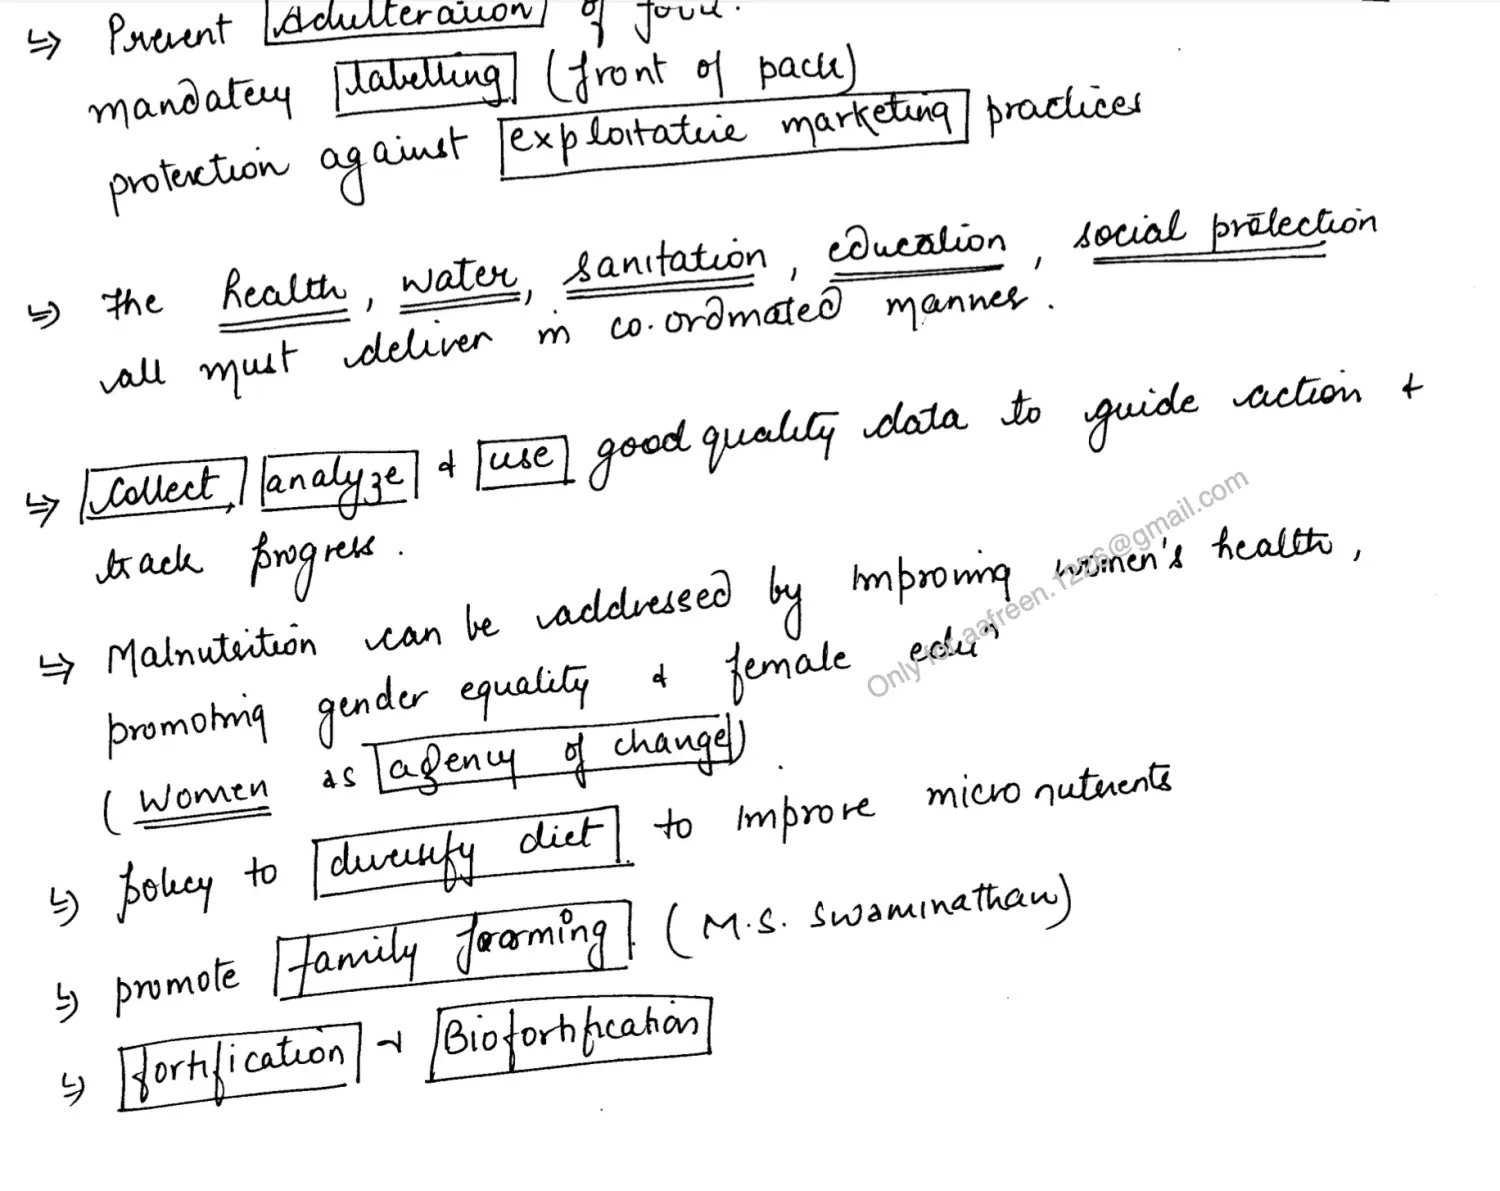 ↳> Prevent Adulteration of food.
mandatory labelling (front of pack)
protection against exploitative marketing practices
↳> The health, water, sanitation, education, social protection
all must deliver in co.ordinated manner.
↳> Collect, analyze & use good quality data to guide action &
track progress.
↳> Malnutrition can be addressed by improving women's health,
promoting gender equality & female eduⁿ
(Women as agency of change)
↳> policy to diversify diet to improve micro nutrients
↳> promote family farming (M.S. Swaminathan)
↳> fortification & Biofortification
Only for aafreen.1226@gmail.com